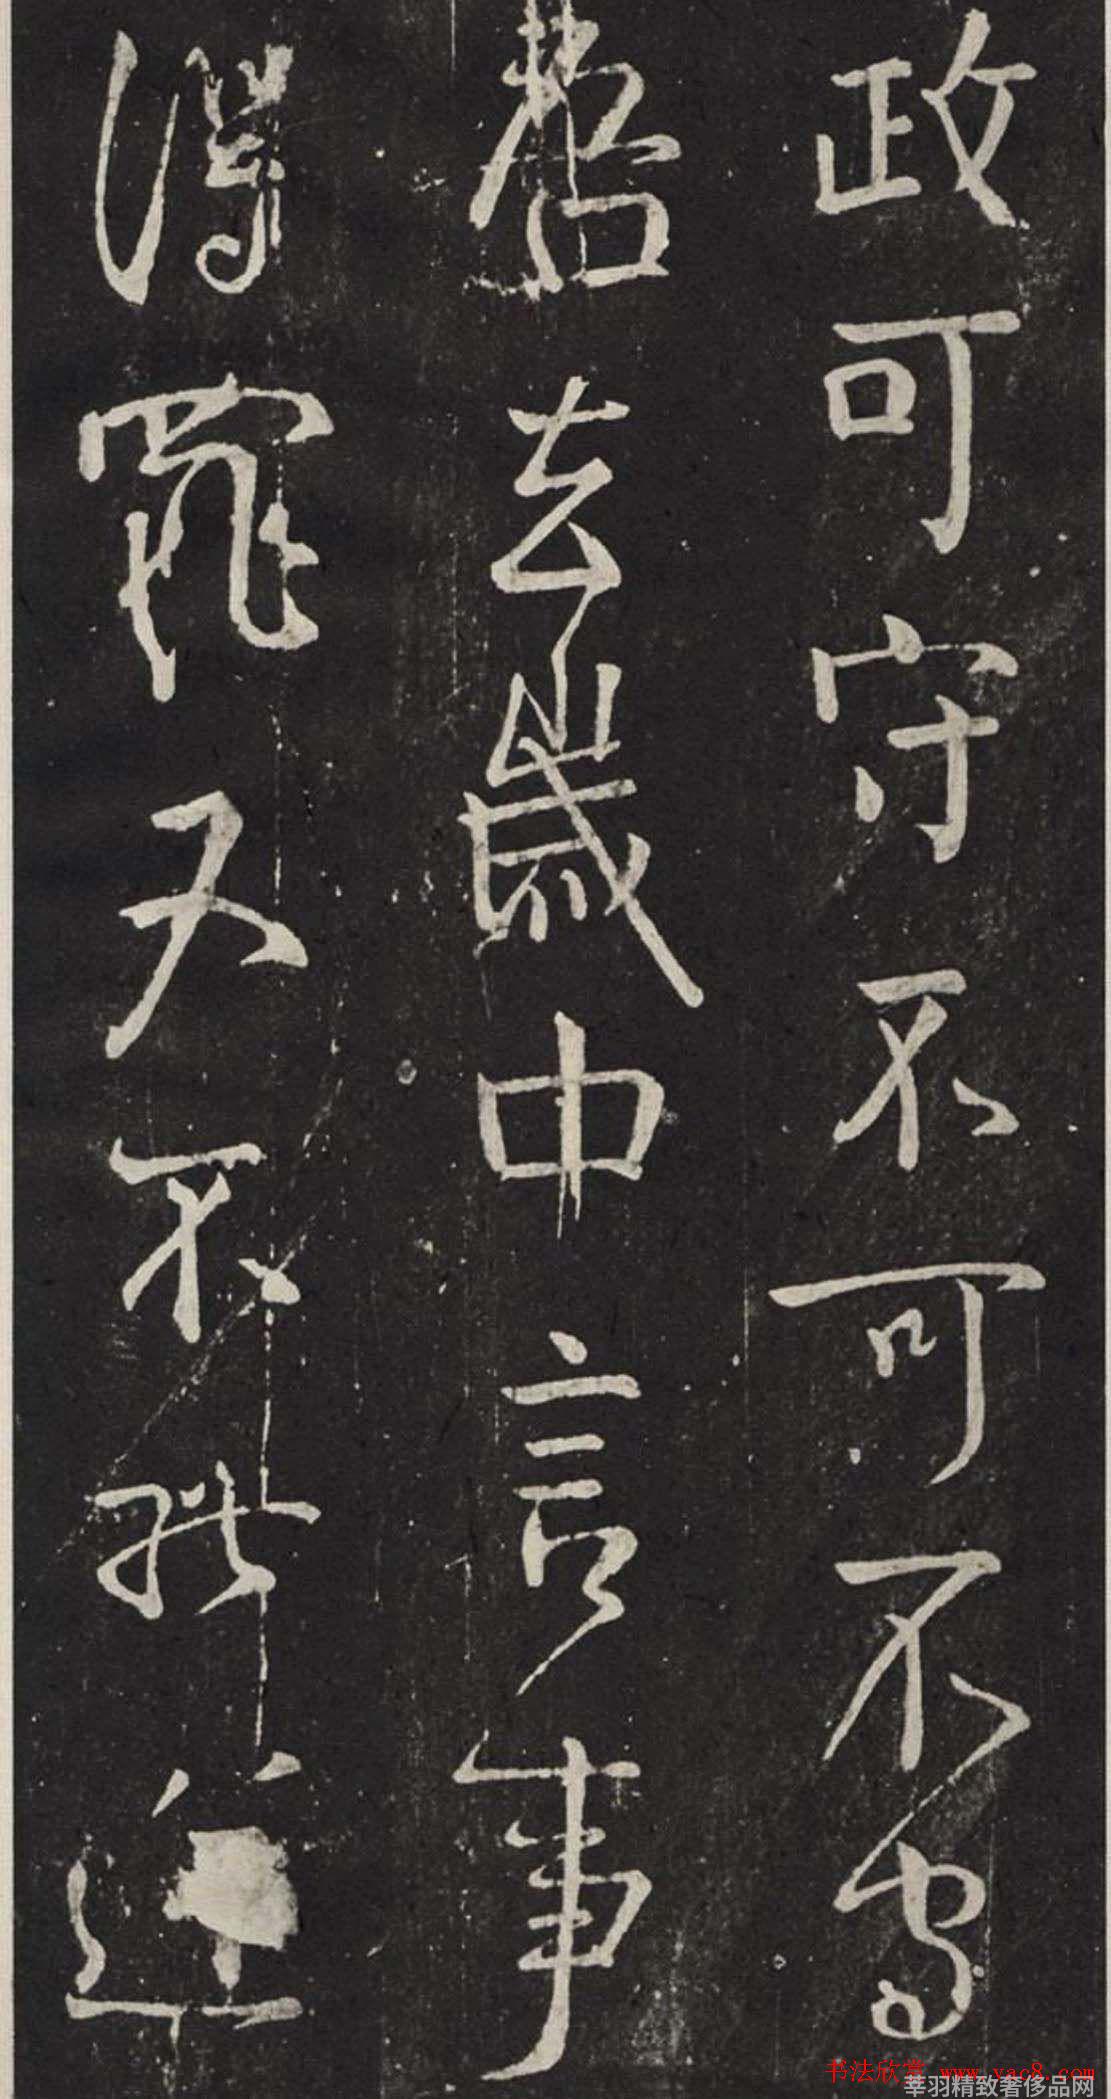 政可守不可不守
吾去歲中言事
得罪又不能逆
书法欣赏 www.yac8.com
莘羽精致奢侈品网